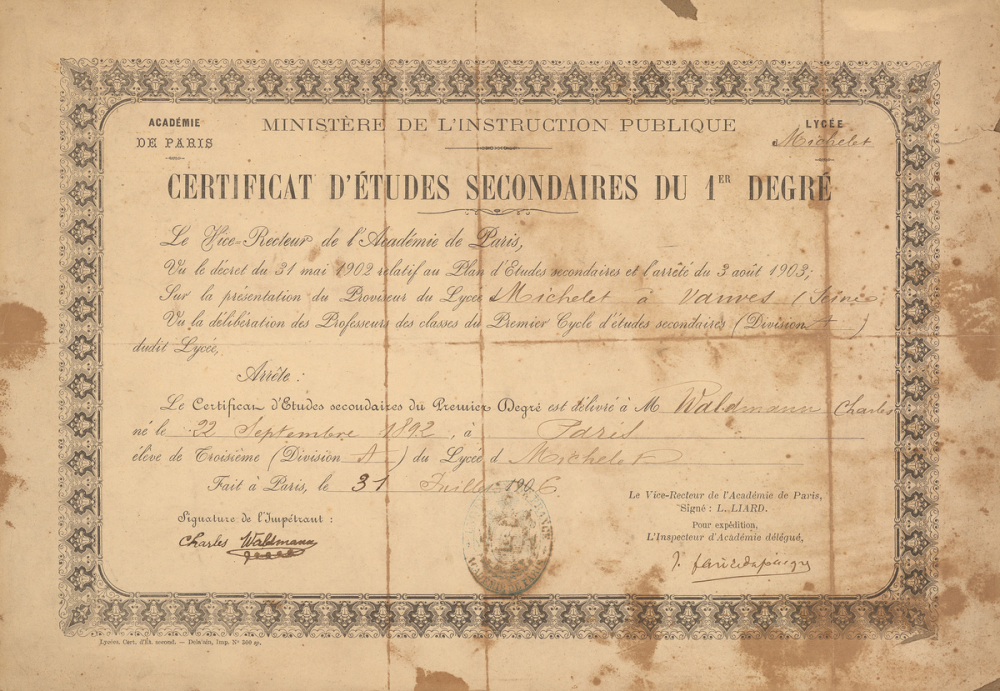 ACADÉMIE
DE PARIS
MINISTÈRE DE L'INSTRUCTION PUBLIQUE
LYCÉE
Michelet
CERTIFICAT D'ÉTUDES SECONDAIRES DU 1ER DEGRÉ
Le Vice-Recteur de l'Académie de Paris,
Vu le décret du 31 mai 1902 relatif au Plan d'Études secondaires et l'arrêté du 3 août 1903;
Sur la présentation du Proviseur du Lycée Michelet à Vanves (Seine)
Vu la délibération des Professeurs des classes du Premier Cycle d'études secondaires (Division A)
dudit Lycée,
Arrête :
Le Certificat d'Études secondaires du Premier Degré est délivré à M Waldmann Charles
né le 22 Septembre 1892, à Paris
élève de Troisième (Division A) du Lycée d Michelet
Fait à Paris, le 31 Juillet 1906.
Le Vice-Recteur de l'Académie de Paris,
Signé : L. LIARD.
Pour expédition,
L'Inspecteur d'Académie délégué,
Signature de l'Impétrant :
Charles Waldmann
ACADÉMIE DE PARIS
Lycées. Cert. d'Ét. second. — Imp. N° 500